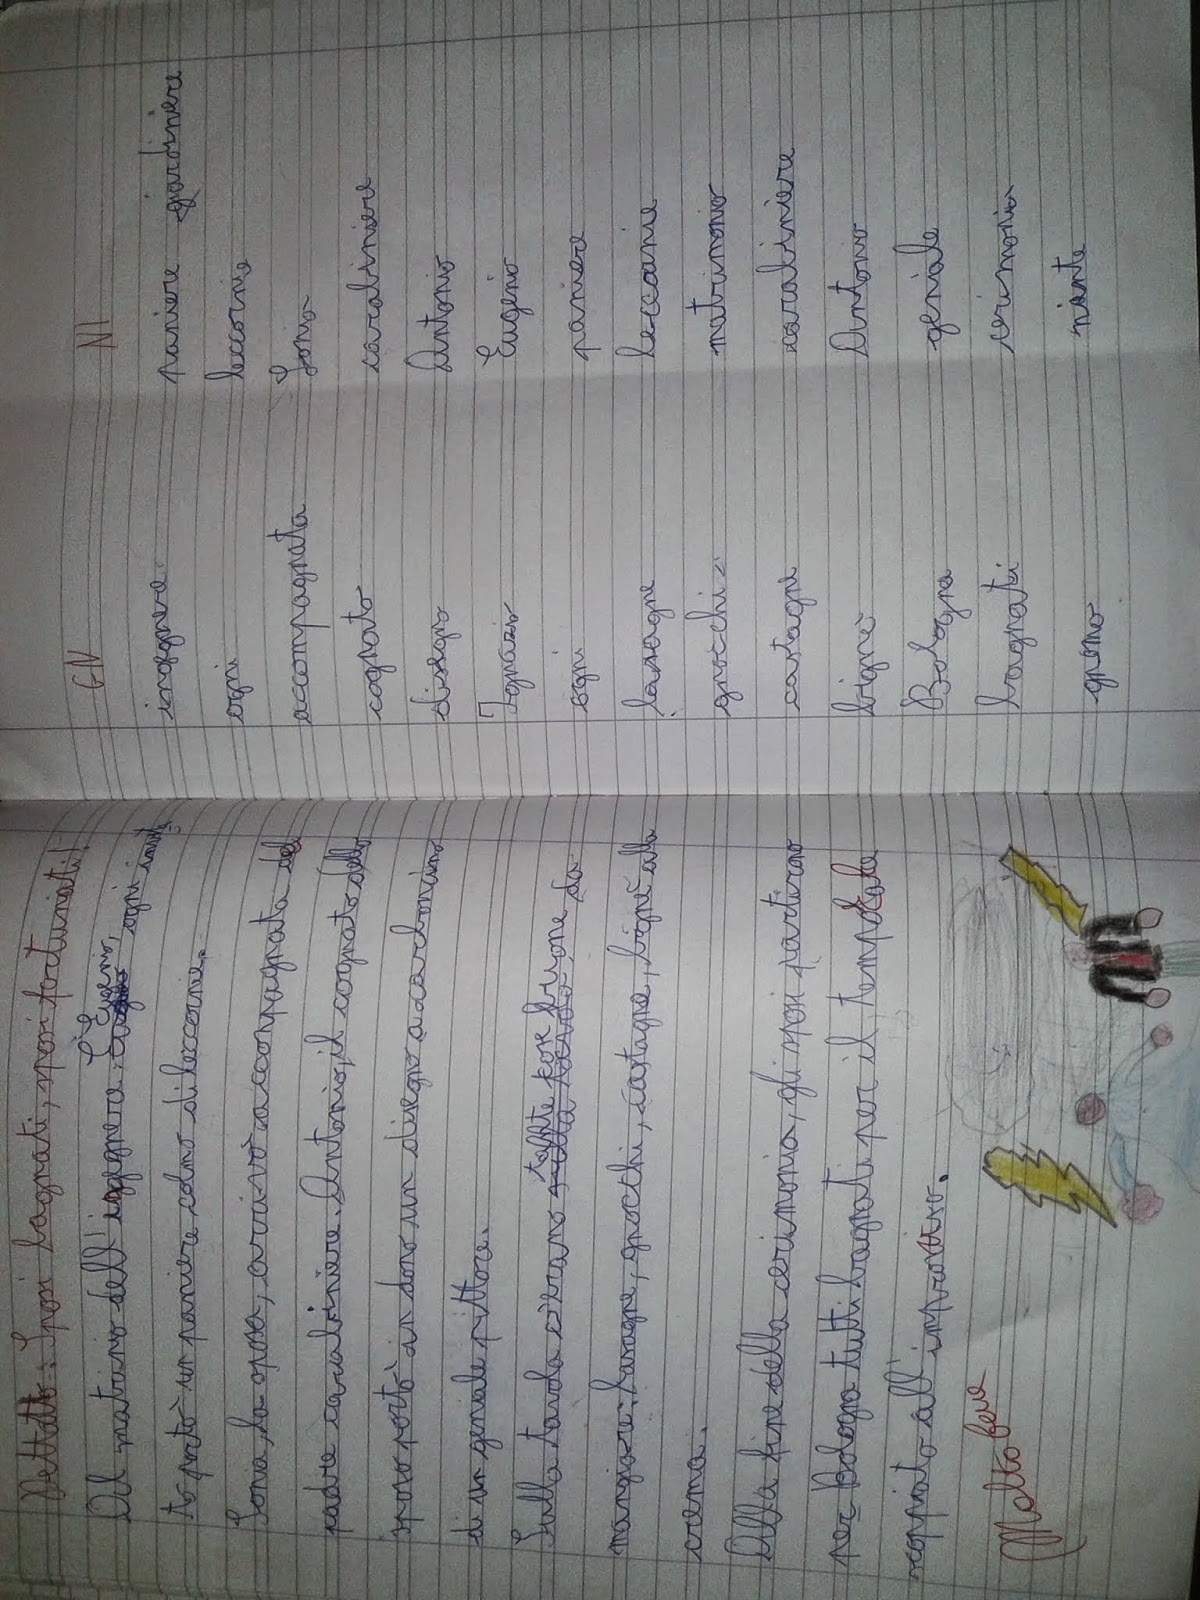 Dettato: Sposi bagnati, sposi fortunati!
Al matrinio dell'ingegnere Eugenio, ogni invita
to portò un paniere colmo di leccornie.
Sonia, la sposa, arrivò accompagnata dal
padre carabiniere. Antonio, il cognato dello
sposo portò in dono un disegno a carboncino
di un geniale pittore.
Sulla tavola c'erano tante cose buone da
mangiare: lasagne, gnocchi, castagne, bignè alla
crema.
Alla fine della cerimonia, gli sposi partirono
per Bologna tutti bagnati per il temporale
scoppiato all'improvviso.
Molto bene
GN NI
ingegnere paniere giardiniere
ogni leccornie
accompagnata Sonia
cognato carabiniere
disegno Antonio
Ignazio Eugenio
ogni paniere
lasagne leccornie
gnocchi matrimonio
castagne carabiniere
bignè Antonio
Bologna geniale
bagnati cerimonia
gnomo niente